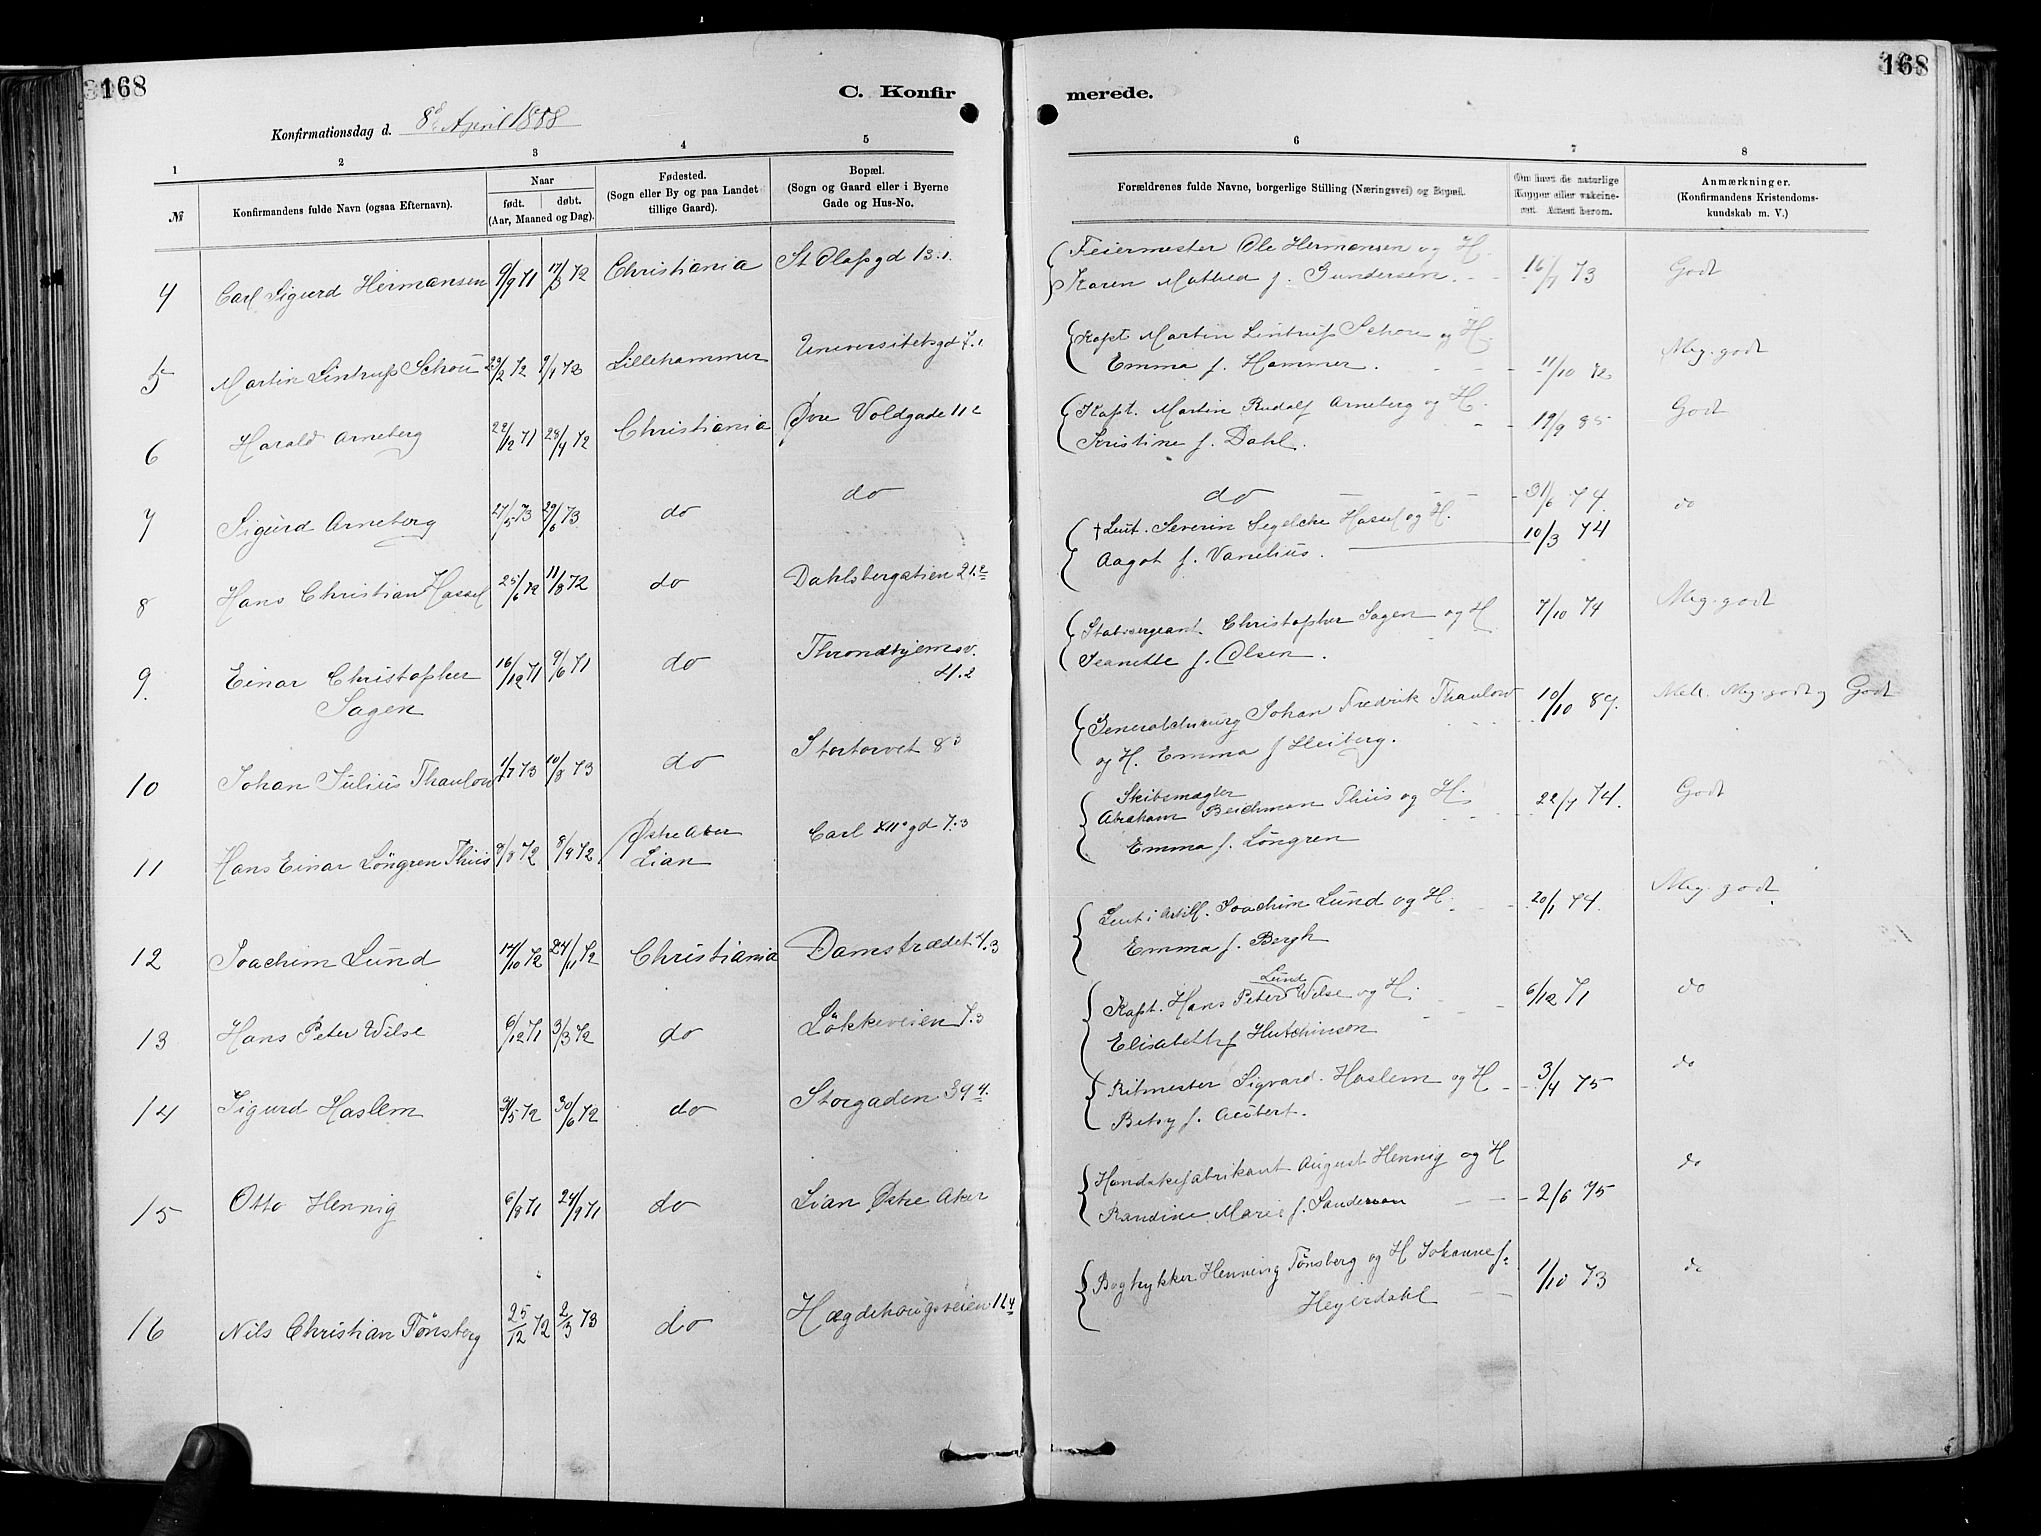 168
168
C. Konfirmerede.
Konfirmationsdag d. 8de April 1888
1 2 3 4 5 6 7 8
№
Konfirmandens fulde Navn (ogsaa Efternavn).
Naar
født. døbt.
(Aar, Maaned og Dag).
Fødested.
(Sogn eller By og paa Landet
tillige Gaard).
Bopæl.
(Sogn og Gaard eller i Byerne
Gade og Hus-No.
Forældrenes fulde Navne, borgerlige Stilling (Næringsvei) og Bopæl.
Om havt de naturlige
Kopper eller vakcine-
ret. Attest herom.
Anmærkninger.
(Konfirmandens Kristendoms-
kundskab m. V.)
4 Carl Sigurd Hermansen 9/9 71 17/3 72 Christiania St Olafsgd 13.1. Feiermester Ole Hermansen og H. 16/7 73 Godt
Karen Mathea f. Gundersen.
5 Martin Lintrup Schou 23/2 72 9/1 73 Lillehammer Universitetsgd 7.1 Kapt Martin Lintrup Schou og H. 11/10 72 Meg. godt
Emma f. Hammer.
6 Harald Arneberg 22/12 71 28/4 72 Christiania Øvre Voldgade 11 2 Kapt. Martin Rudolf Arneberg og H. 19/9 85 Godt
Kristine f. Dahl.
7 Sigurd Arneberg 27/5 73 29/6 73 do do do 31/6 74. do
8 Hans Christian Hassel 25/6 72 11/8 72 do Dahlsbergstien 21.2 † Leut. Severin Segelcke Hassel og H. 10/3 74
Aagot f. Vanelius.
9. Einar Christopher 16/12 71 9/6 71 do Throndhjemsv. Stabssergeant Christopher Sagen og H 7/10 74 Meg. godt
Sagen 4.2 Jeanette f. Olsen.
10 Johan Julius Thaulow 1/7 73 10/8 73 do Stortorvet 8 3 Generalchirurg Johan Fredrik Thaulow 10/10 87. Mell. Meg. godt og Godt
og H. Emma f Heiberg.
11 Hans Einar Löngren Thiis 8/8 72 8/9 72 Østre Aker Carl XIIs gd 7.3 Skibsmægler
Lian Abraham Beichman Thiis og H. 22/7 74. Godt
Emma f. Löngren
12 Joachim Lund 14/10 72 24/11 72 Christiania Damstrædet 4.3 Leut i Artill. Joachim Lund og H. 20/1 74. Meg. godt
Emma f. Bergh
13 Hans Peter Wilse 6/12 71 3/3 72 do Lökkeveien 7.3 Kapt. Hans Peter Lund Wilse og H. 6/12 71 do
Elisabeth f Hutchinson
14 Sigurd Haslem 3/5 72 30/6 72 do Storgaden 39 4. Ritmester Sigvard. Haslem og H 3/4 75 do
Betsy f. Aubert.
15 Otto Hennig 6/8 71 24/9 71 do Lian Østre Aker Handskefabrikant August Hennig og H 2/6 75 do
Randine Marie f. Sanderson
16 Nils Christian Tönsberg 25/12 72 2/3 73 do Hægdehaugsveien 11 4 Bogtrykker Henning Tönsberg og H Johanne f. 1/10 73 do
Heyerdahl